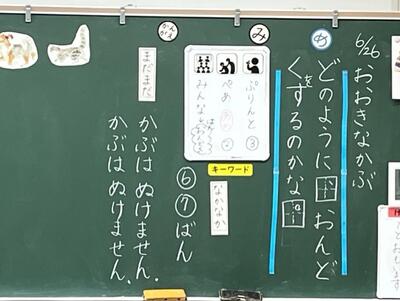 6/26
おおきなかぶ
め
どのように おんど
くをするのかな
み
ぷりんと ③
ぺあ ②
みんな
キーワード
なかなか
⑥⑦ばん
かんがえ
まだまだ
かぶは ぬけません。
かぶは ぬけません。